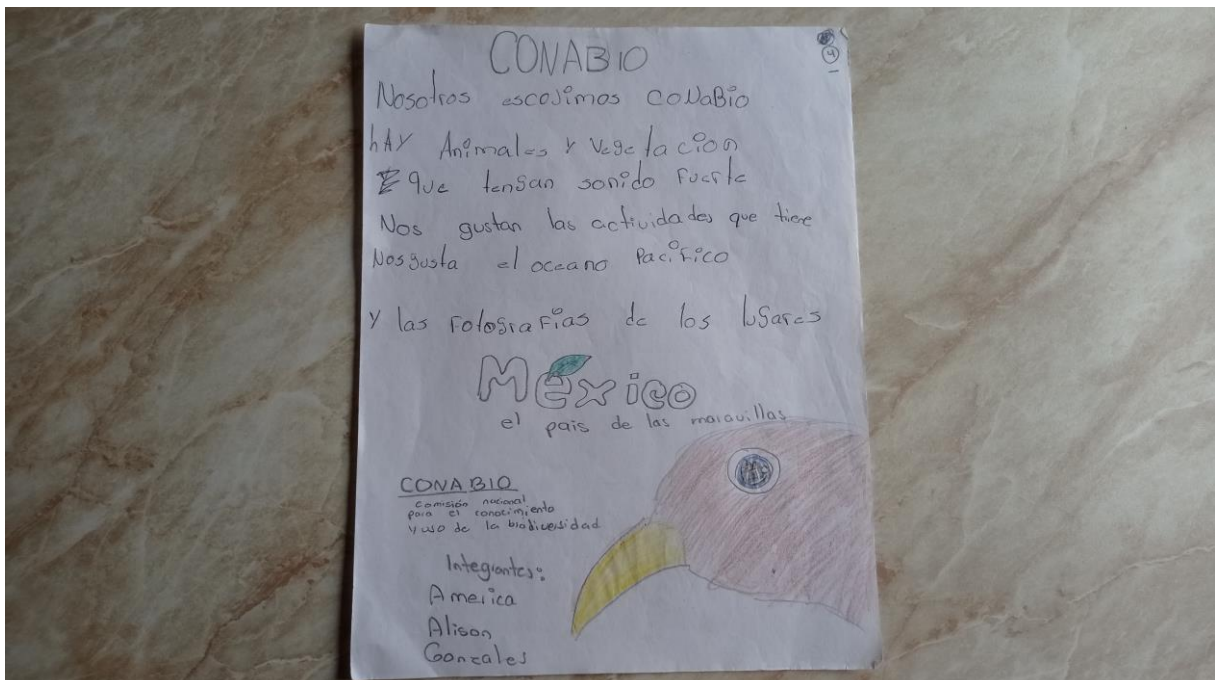 CONABIO
4
Nosotros escojimos CONaBio
hAY Animales y Vegetacion
que tengan sonido Fuerte
Nos gustan las actividades que tiene
Nos gusta el oceano Pacifico
y las Fotografias de los lugares
México
el pais de las maravillas
CONABIO
Comisión nacional
para el conocimiento
y uso de la biodiversidad
Integrantes:
America
Alison
Gonzales